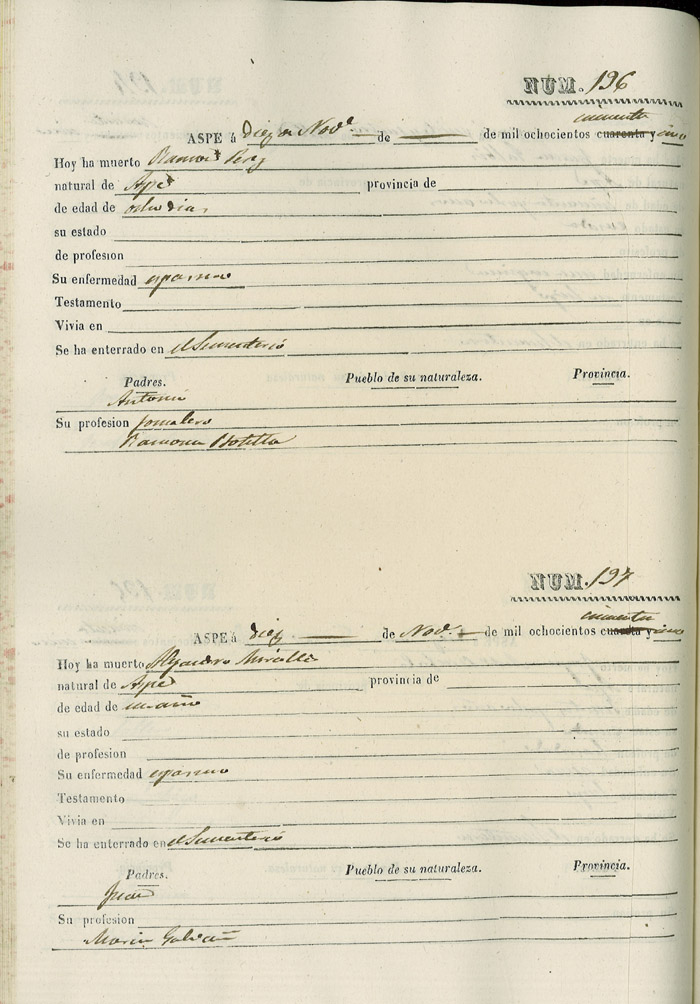 NUM. 196
cincuenta
ASPE á diez de Nov.e de mil ochocientos cuarenta y cinco
Hoy ha muerto Ramon Perez
natural de Aspe provincia de
de edad de ocho dias
su estado
de profesion
Su enfermedad espasmo
Testamento
Vivia en
Se ha enterrado en el Sementerio
Padres. Pueblo de su naturaleza. Provincia.
Antonio
Su profesion Jornalero
Ramona Botella
NUM. 197
cincuenta
ASPE á diez de Nov.e de mil ochocientos cuarenta y cinco
Hoy ha muerto Alejandro Miralles
natural de Aspe provincia de
de edad de un año
su estado
de profesion
Su enfermedad espasmo
Testamento
Vivia en
Se ha enterrado en el Sementerio
Padres. Pueblo de su naturaleza. Provincia.
Juan
Su profesion
Maria Galvañ